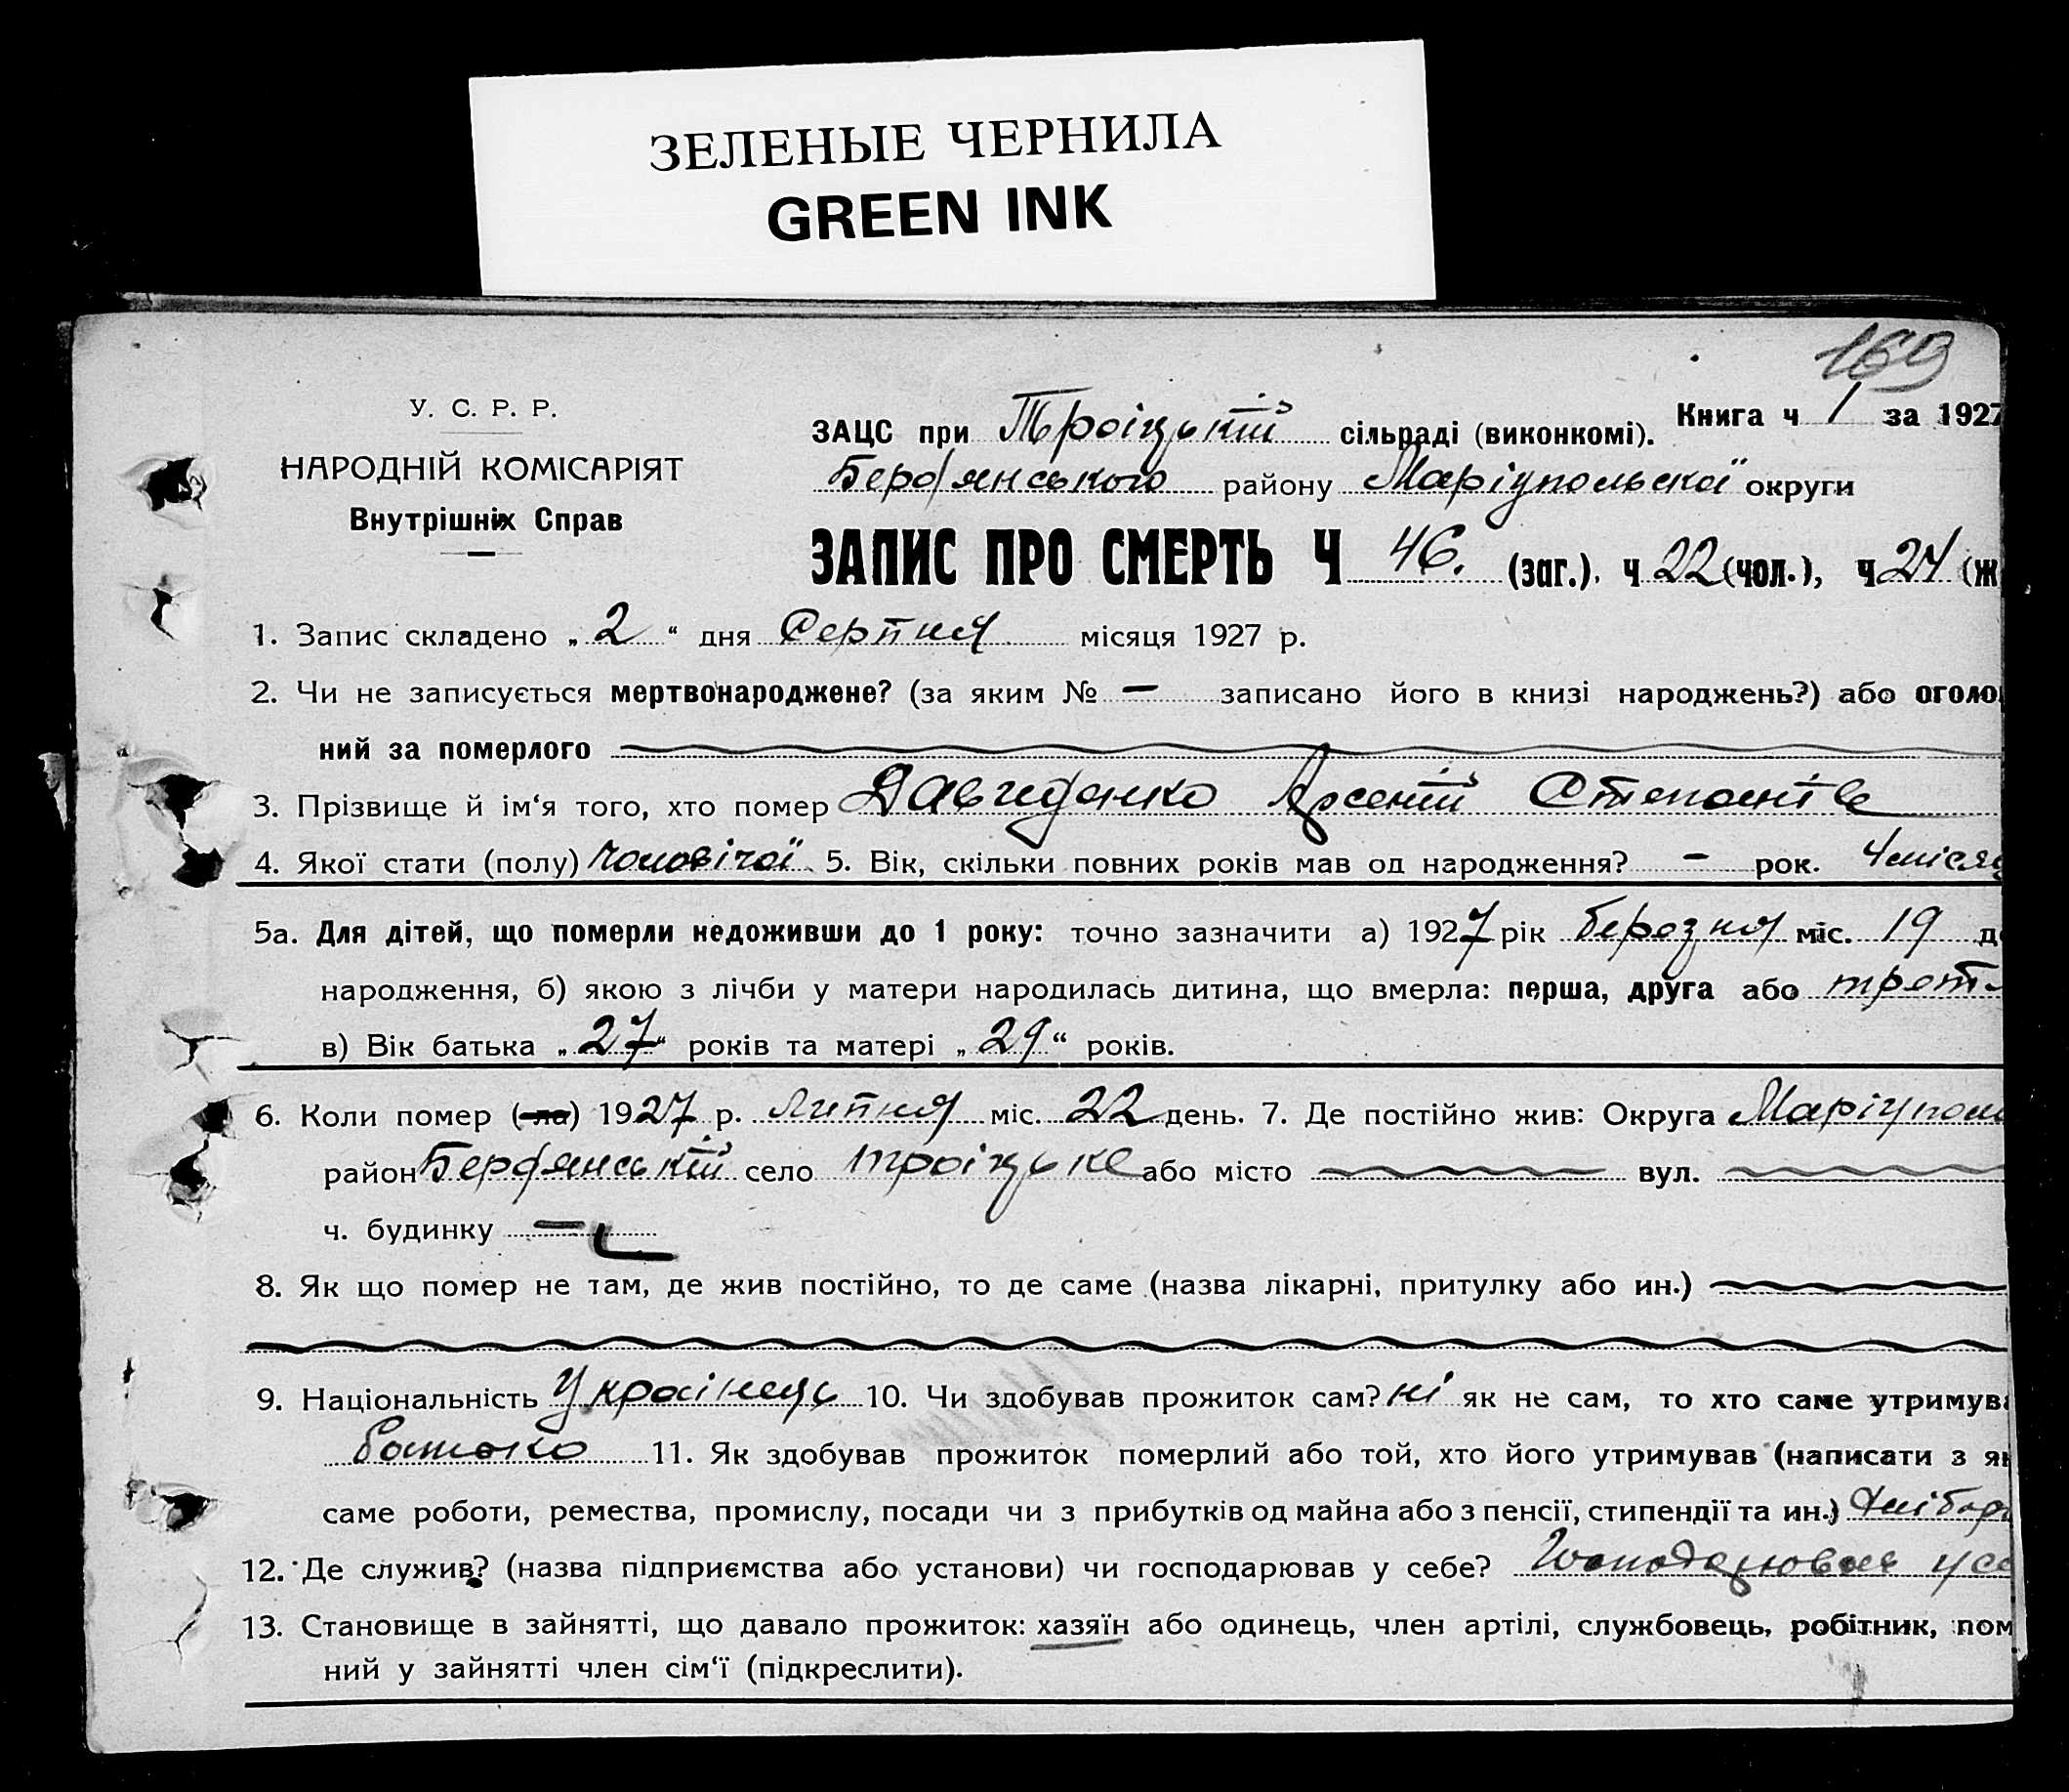 ЗЕЛЕНЫЕ ЧЕРНИЛА
GREEN INK
169
У. С. Р. Р.
НАРОДНІЙ КОМІСАРІЯТ
Внутрішніх Справ
Книга ч 1 за 1927
ЗАЦС при Троіцькій сільраді (виконкомі).
Бердянського району Маріупольскоі округи
ЗАПИС ПРО СМЕРТЬ Ч 46. (заг.). ч 22 (чол.), ч 24 (ж
1. Запис складено „ 2 “ дня Серпня місяця 1927 р.
2. Чи не записується мертвонароджене? (за яким № – записано його в книзі народжень?) або оголо
ний за померлого
3. Прізвище й ім‘я того, хто помер Давиденко Арсеній Степанів
4. Якої стати (полу) чоловічої 5. Вік, скільки повних років мав од народження? – рок. 4 місяц
5а. Для дітей, що померли недоживши до 1 року: точно зазначити а) 1927 рік березня міс. 19 д
народження, б) якою з лічби у матери народилась дитина, що вмерла: перша, друга або трет
в) Вік батька „ 27 “ років та матері „ 29 “ років.
6. Коли помер (-ла) 1927 р. липня міс. 22 день. 7. Де постійно жив: Округа Маріупол
район Бердянській село Троіцьке або місто вул.
ч. будинку –
8. Як що помер не там, де жив постійно, то де саме (назва лікарні, притулку або ин.)
9. Національність Украінець 10. Чи здобував прожиток сам? ні як не сам, то хто саме утримув
батько 11. Як здобував прожиток померлий або той, хто його утримував (написати з як
саме роботи, ремества, промислу, посади чи з прибутків од майна або з пенсії, стипендії та ин.) Хлібор
12. Де служив? (назва підприємства або установи) чи господарював у себе? Господарював у се
13. Становище в зайнятті, що давало прожиток: хазяїн або одинець, член артілі, службовець, робітник, пом
ний у зайнятті член сім‘ї (підкреслити).